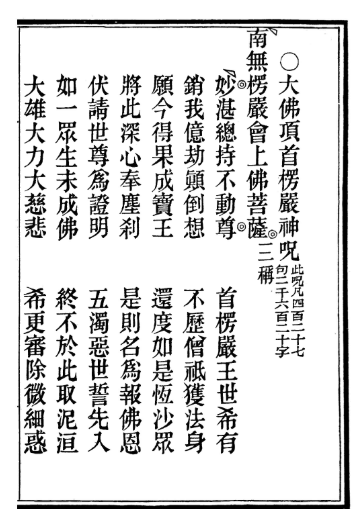 ○大佛頂首楞嚴神呪此呪凡四百二十七句二千六百二十字
南無楞嚴會上佛菩薩三稱
妙湛總持不動尊　首楞嚴王世希有
銷我億劫顚倒想　不歷僧祇獲法身
願今得果成寶王　還度如是恆沙眾
將此深心奉塵刹　是則名爲報佛恩
伏請世尊爲證明　五濁惡世誓先入
如一眾生未成佛　終不於此取泥洹
大雄大力大慈悲　希更審除微細惑